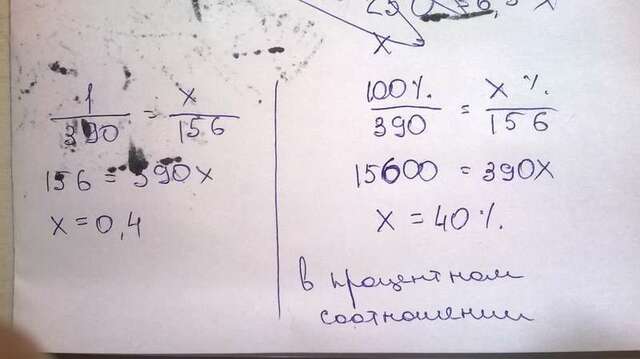 x
1/390 = x/156
156 = 390x
x = 0,4
100%/390 = x%/156
15600 = 390x
x = 40%.
в процентном
соотношении